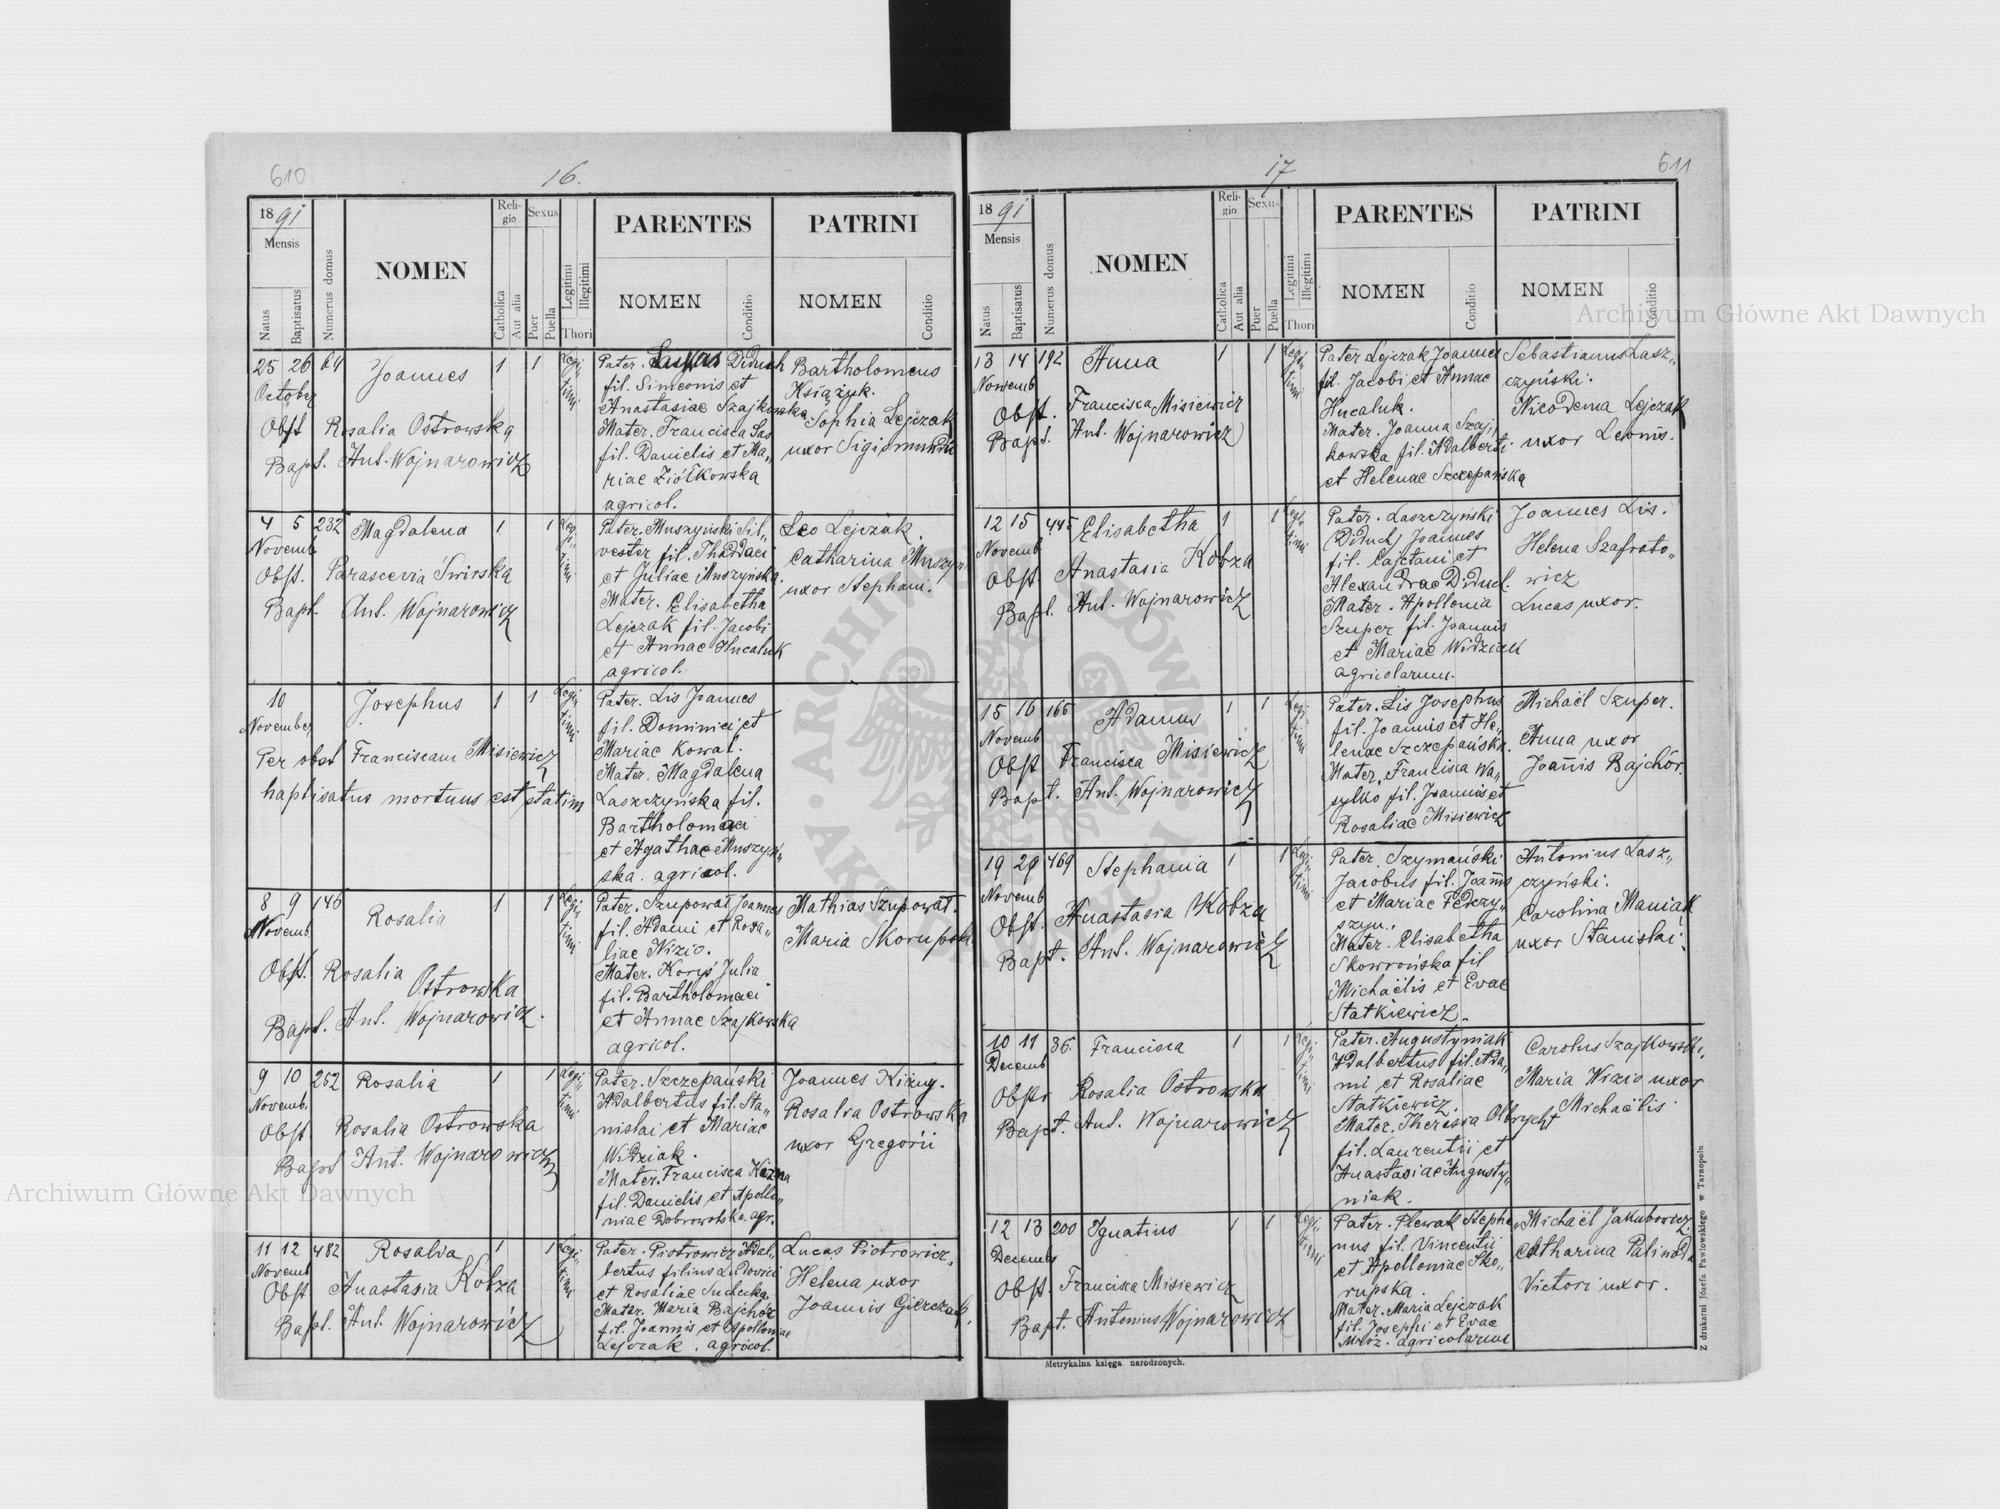 610
16.
1891
Mensis
Natus
Baptisatus
Numerus domus
NOMEN
Religio
Catholica
Aut alia
Sexus
Puer
Puella
Legitimi
Illegitimi
Thori
PARENTES
NOMEN
Conditio
PATRINI
NOMEN
Conditio
25 26 64 Joannes 1 1 Legitimi
October
Obst Rosalia Ostrowska
Bapt. Ant. Wojnarowicz
Pater. Didush
fil. Simeonis et
Anastasiae Szajkowska
Mater. Francisca Sas
fil. Danielis et Ma„
riae Ziółkowska
agricol.
Bartholomeus
Książyk.
Sophia Lejczak
uxor Sigismundi
4 5 232 Magdalena 1 1 Legitimi
Novemb
Obst. Parascevia Swirska
Bapt. Ant. Wojnarowicz
Pater. Muszyński Sil„
vester fil. Thaddaei
et Juliae Muszyńska.
Mater. Elisabetha
Lejczak fil. Jacobi
et Annae Hucaluk
agricol.
Leo Lejczak.
Catharina Muszyn
uxor Stephani.
10 Josephus 1 1 Legitimi
November
Per obst Franciscam Misiewicz
baptisatus mortuus est statim
Pater. Lis Joannes
fil. Dominici et
Mariae Kowal.
Mater. Magdalena
Laszczyńska fil.
Bartholomaei
et Agathae Muszyń„
ska. agricol.
8 9 146 Rosalia 1 1 Legitimi
Novemb
Obst. Rosalia
Ostrowska
Bapt. Ant. Wojnarowicz.
Pater. Szupowat Joannes
fil. Adami et Rosa„
liae Wizio.
Mater. Koryś Julia
fil. Bartholomaei
et Annae Szajkowska
agricol.
Mathias Szupowat.
Maria Skorupska
9 10 252 Rosalia 1 1 Legitimi
Novemb.
Obst. Rosalia Ostrowska
Bapt Ant. Wojnarowicz
Pater. Szczepański
Adalbertus fil. Sta„
nislai et Mariae
Widziak.
Mater. Francisca Kizna
fil. Danielis et Apollo„
niae Dobrowolska. agr.
Joannes Kizny.
Rosalia Ostrowska
uxor Gregorii
11 12 482 Rosalia 1 1 Legitimi
Novemb
Obst Anastasia Kobza
Bapt. Ant. Wojnarowicz
Pater. Piotrowicz Adal„
bertus filius Ludovici
et Rosaliae
Mater. Maria Bajchór
fil. Joannis et Apolloniae
Lejczak. agricol.
Lucas Piotrowicz,
Helena uxor
Joannis
611
17
1891
Mensis
Natus
Baptisatus
Numerus domus
NOMEN
Religio
Catholica
Aut alia
Sexus
Puer
Puella
Legitimi
Illegitimi
Thori
PARENTES
NOMEN
Conditio
PATRINI
NOMEN
Conditio
13 14 192 Anna 1 1 Legitimi
Novemb
Obst. Francisca Misiewicz
Bapt. Ant. Wojnarowicz
Pater Lejczak Joannes
fil. Jacobi et Annae
Hucaluk.
Mater. Joanna Szaj
kowska fil. Adalberti
et Helenae Szczepańska
Sebastianus Lasz„
czyński.
Nicodema Lejczak
uxor Leonis.
12 15 445 Elisabetha 1 1 Legitimi
Novemb
Obst. Anastasia Kobza
Bapt. Ant. Wojnarowicz
Pater. Laszczyński
(Diduch) Joannes
fil. Cajetani et
Alexandrae Diduch.
Mater. Apollonia
Szuper fil. Joannis
et Mariae Widziak
agricolarum.
Joannes Lis.
Helena Szafrato„
wicz
Lucas uxor.
15 16 165 Adamus 1 1 Legitimi
Novemb
Obst Francisca Misiewicz
Bapt. Ant. Wojnarowicz
Pater. Lis Josephus
fil. Joannis et He„
lenae Szczepańska.
Mater. Francisca Wa„
sylko fil. Joannis et
Rosaliae Misiewicz
Michaël Szuper.
Anna uxor
Joannis Bajchór.
19 29 469 Stephania 1 1 Legitimi
Novemb
Obst. Anastasia Kobza
Bapt. Ant. Wojnarowicz
Pater. Szymański
Jacobus fil. Joannis
et Mariae Fedczy„
szyn.
Mater. Elisabetha
Skowrońska fil
Michaëlis et Evae
Statkiewicz.
Antonius Lasz„
czyński.
Carolina Maniak
uxor Stanislai.
10 11 36. Francisca 1 1 Legitimi
Decemb
Obst Rosalia Ostrowska
Bapt. Ant. Wojnarowicz
Pater. Augustyniak
Adalbertus fil. Ada„
mi et Rosaliae
Statkiewicz.
Mater. Theresia Olbrycht
fil. Laurentii et
Anastasiae Augusty„
niak.
Carolus Szajkowski.
Maria Wizio uxor
Michaëlis.
12 13 200 Ignatius 1 1 Legitimi
Decemb
Obst. Francisca Misiewicz
Bapt. Antonius Wojnarowicz
Pater. Plewak Stepha„
nus fil. Vincentii
et Apolloniae Sko„
rupska.
Mater. Maria Lejczak
fil. Josephi et Evae
Mróz. agricolarum
Michaël Jakubowicz
Catharina
Victori uxor.
Metrykalna księga narodzonych.
Z drukarni Józefa Pawłowskiego w Tarnopolu
Archiwum Główne Akt Dawnych
Archiwum Główne Akt Dawnych